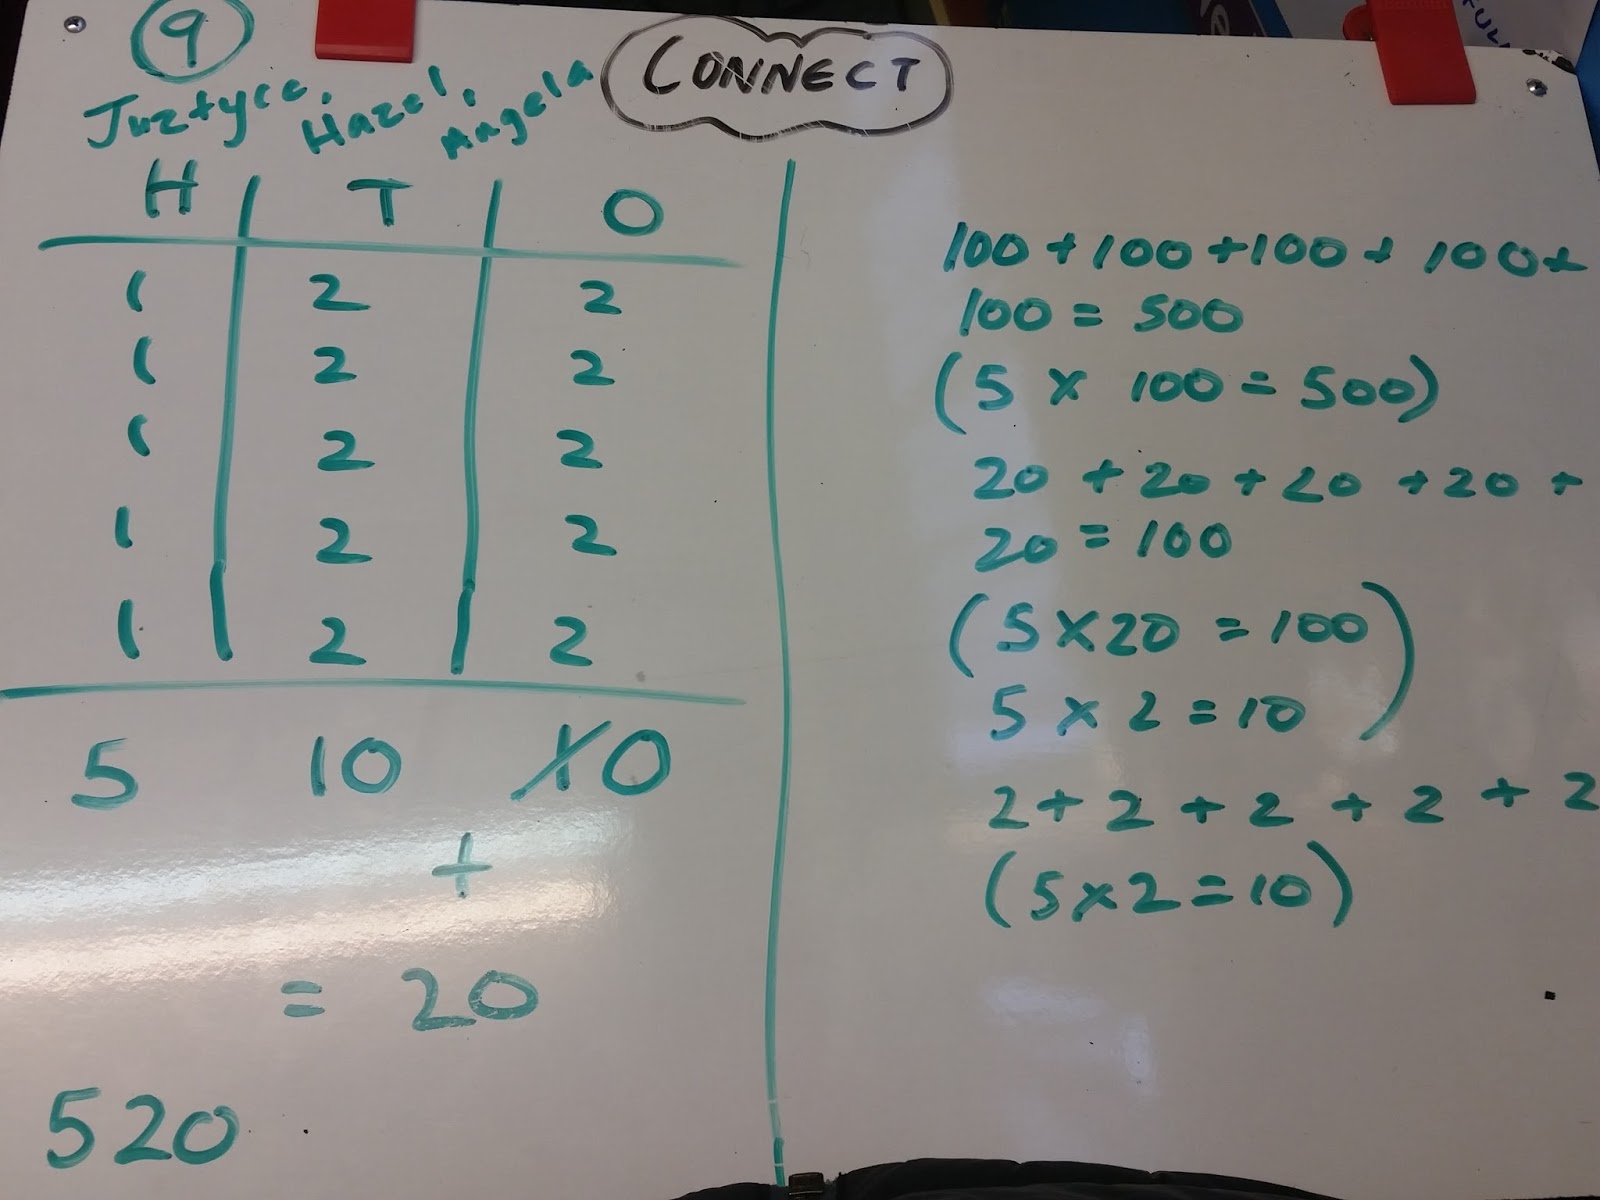 9
CONNECT
Juztyce, Hazel, Angela
H T O
1 2 2
1 2 2
1 2 2
1 2 2
1 2 2
5 10 10
+
= 20
520
100 + 100 + 100 + 100 +
100 = 500
(5 x 100 = 500)
20 + 20 + 20 + 20 +
20 = 100
(5 x 20 = 100
5 x 2 = 10)
2 + 2 + 2 + 2 + 2
(5 x 2 = 10)